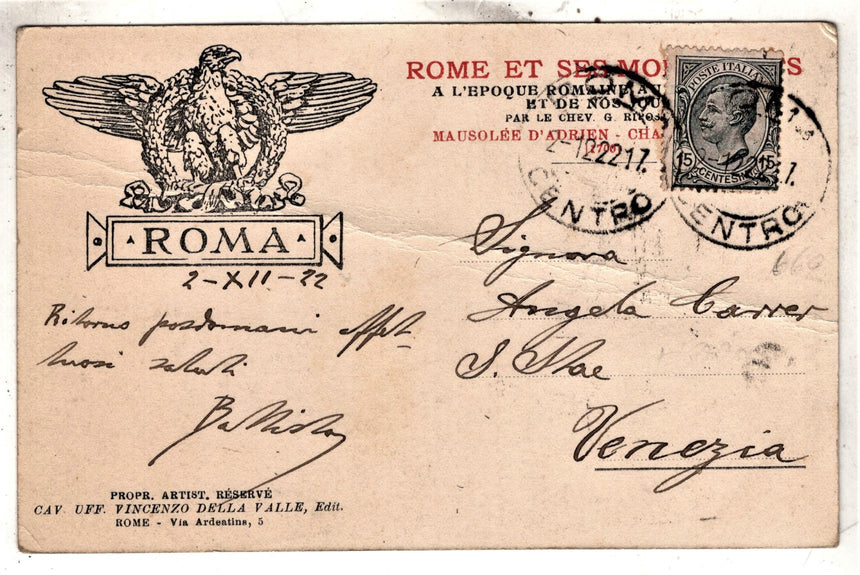 ROMA
2-XII-22
Ritorno posdomani affet-
tuosi saluti
Battista
PROPR. ARTIST. RÉSERVÉ
CAV. UFF. VINCENZO DELLA VALLE, Edit.
ROME - Via Ardeatina, 5
ROME ET SES
A L'EPOQUE ROMAINE
ET DE NOS
PAR LE CHEV. G.
MAUSOLÉE D'ADRIEN -
1700
POSTE ITALIANE
15 15
CENTESIMI
2-12 22 17.
CENTRO
CENTRO
660
Signora
Angela Carrer
S. Stae
Venezia